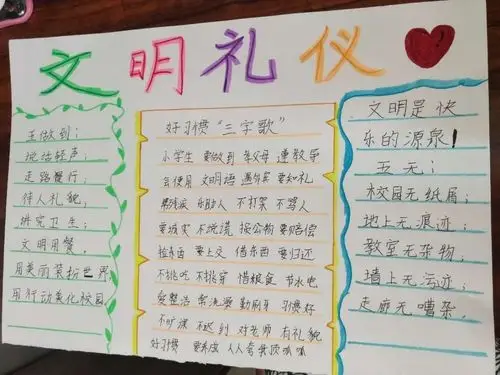 文明礼仪
五做到：
说话轻声；
走路慢行；
待人礼貌，
讲究卫生；
文明用餐，
用美丽装扮世界
用行动美化校园
好习惯“三字歌”
小学生 要做到 孝父母 遵教导
会使用 文明语 遇外宾 要有礼
帮残疾 乐助人 不打架 不骂人
要诚实 不说谎 损公物 要赔偿
捡东西 要上交 借东西 要归还
不挑吃 不挑穿 惜粮食 节水电
爱整洁 常洗澡 勤刷牙 习惯好
不旷课 不迟到 对老师 有礼貌
好习惯 要养成 人人夸我顶呱呱
文明是快
乐的源泉！
五无：
校园无纸屑；
地上无痕迹；
教室无杂物，
墙上无污迹；
走廊无嘈杂，